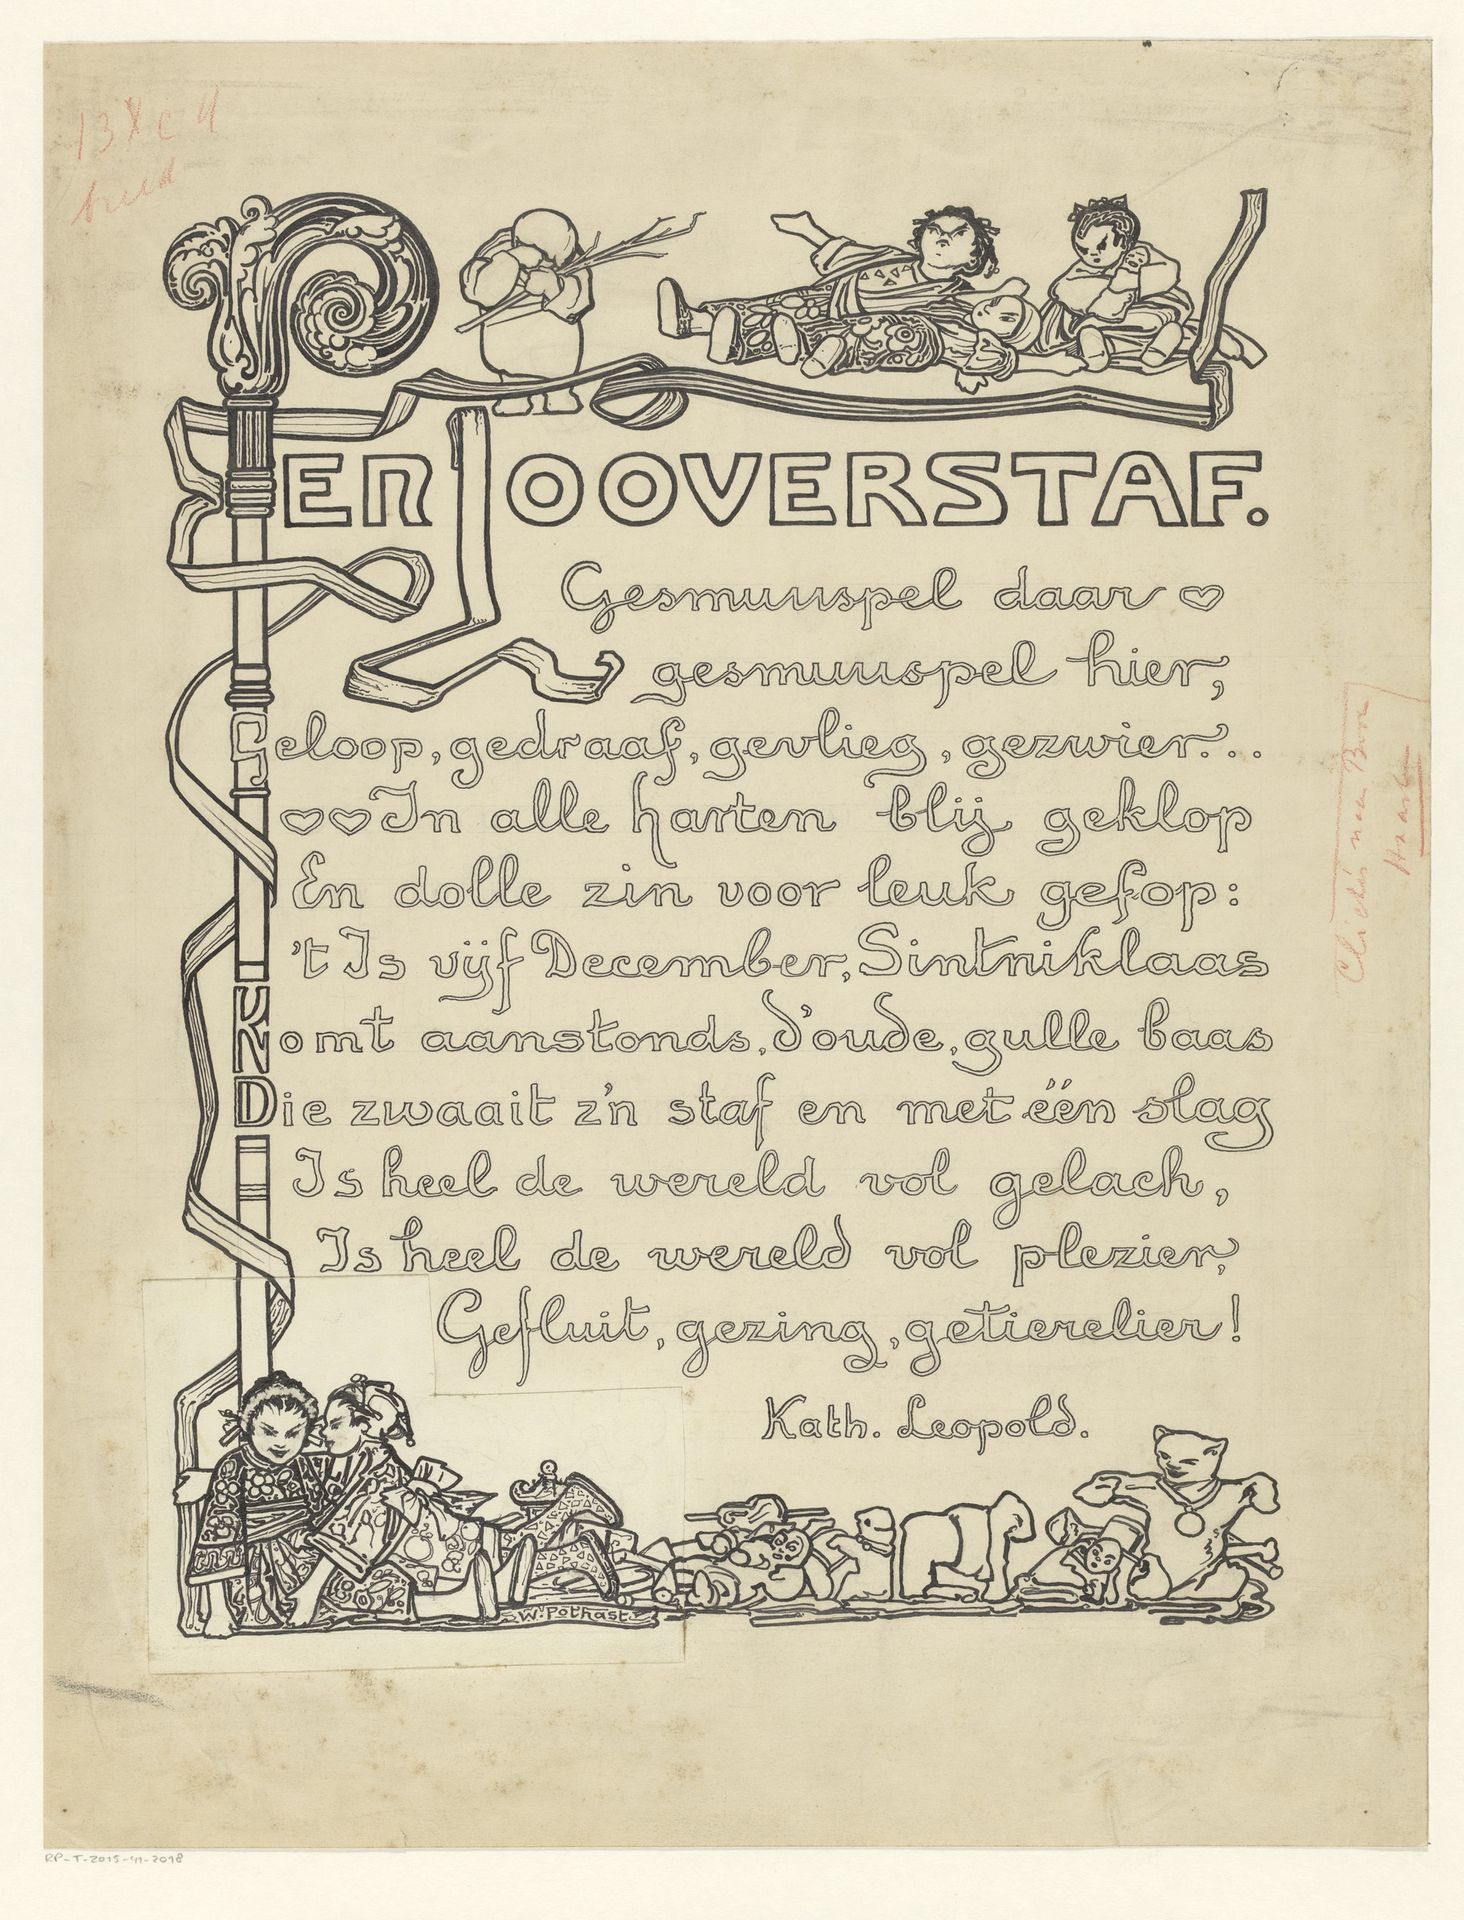 EEn TOOVERSTAF.
Gesmuispel daar
gesmuispel hier,
Geloop, gedraaf, gevlieg, gezwier...
In alle harten blij geklop
En dolle zin voor leuk gefop:
't Is vijf December, Sintniklaas
Komt aanstonds, d'oude, gulle baas
Die zwaait z'n staf en met één slag
Is heel de wereld vol gelach,
Is heel de wereld vol plezier,
Gefluit, gezing, getierelier!
Kath. Leopold.
W. Pothast
RP-T-2015-41-2098